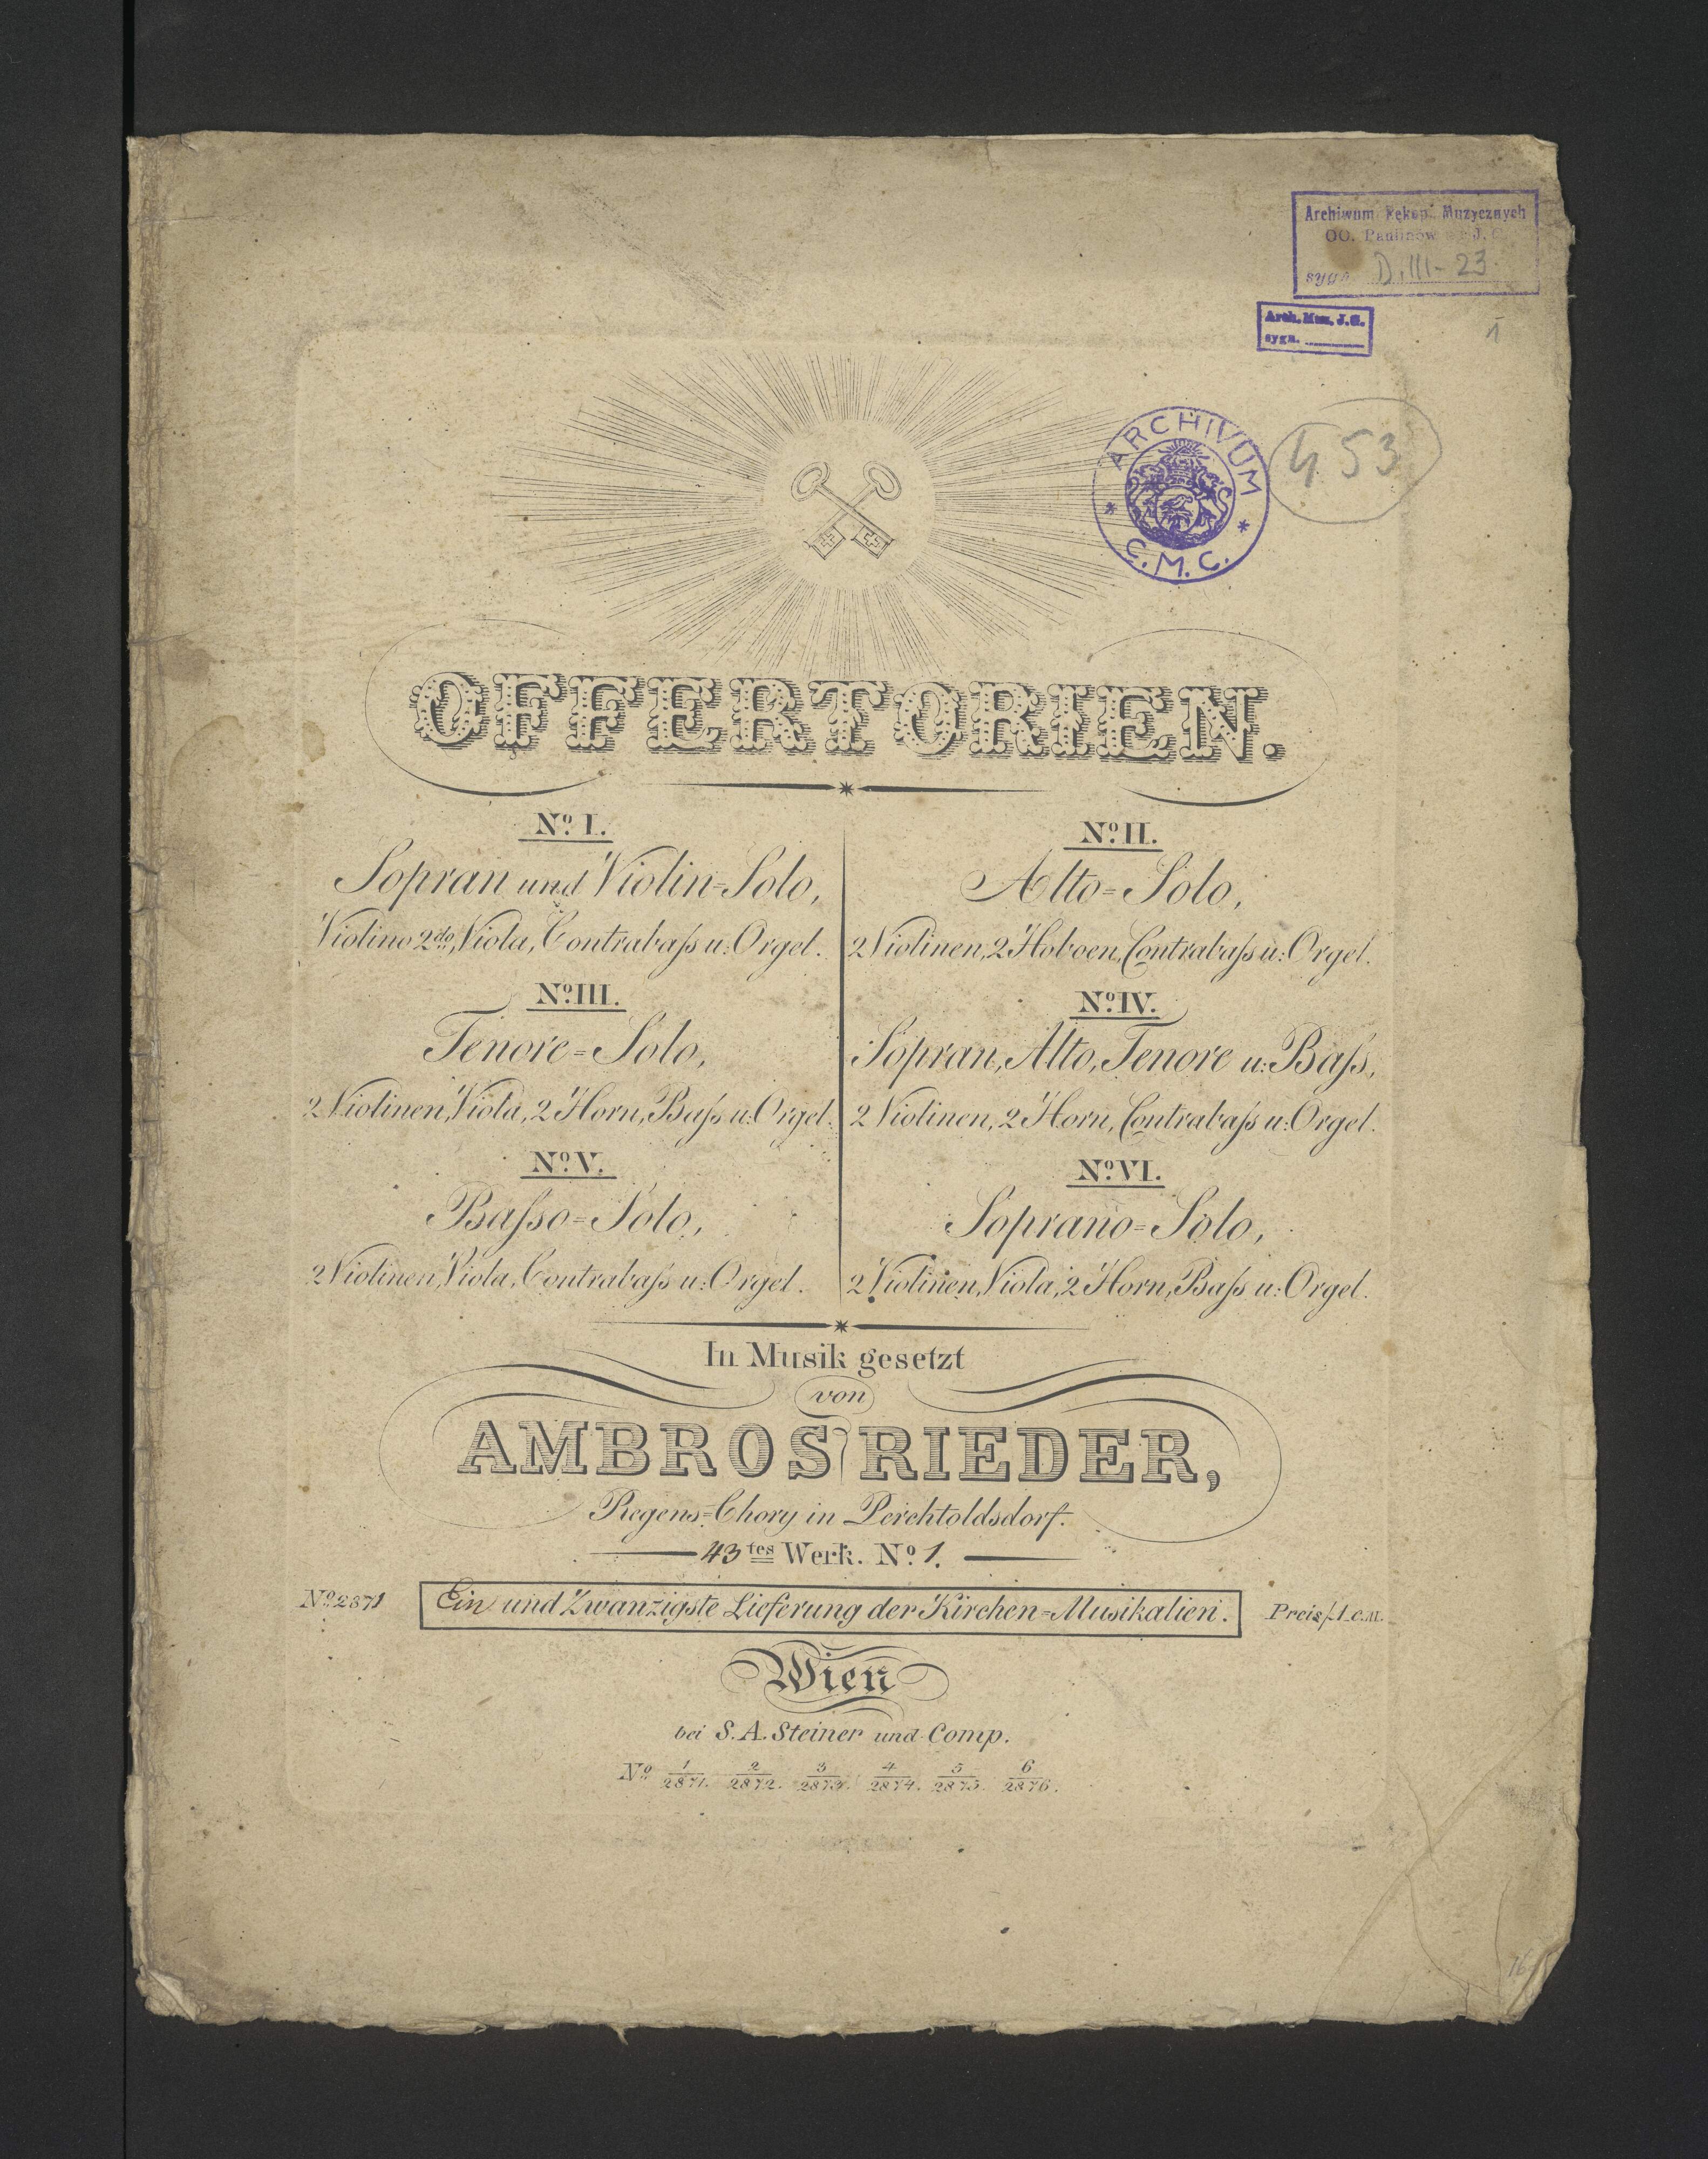 Archiwum Rękop. Muzycznych
OO. Paulinów J.
sygn. D. III - 23.
Arch. Muz. J.G.
sygn.
1
ARCHIVUM
C. M. C.
453
OFFERTORIEN.
No. I.
Sopran und Violin=Solo,
Violino 2do, Viola, Contrabaſs u: Orgel.
No. II.
Alto=Solo,
2 Violinen, 2 Hoboen, Contrabaſs u: Orgel.
No. III.
Tenore=Solo,
2 Violinen, Viola, 2 Horn, Baſs u: Orgel.
No. IV.
Sopran, Alto, Tenore u: Baſs,
2 Violinen, 2 Horn, Contrabaſs u: Orgel.
No. V.
Baſso=Solo,
2 Violinen, Viola, Contrabaſs u: Orgel.
No. VI.
Soprano=Solo,
2 Violinen, Viola, 2 Horn, Baſs u: Orgel.
In Musik gesetzt
von
AMBROS RIEDER,
Regens=Chory in Perchtoldsdorf.
43tes Werk. No. 1.
No. 2871
Ein und Zwanzigste Lieferung der Kirchen=Musikalien.
Preis f. 1_ C.M.
Wien
bei S. A. Steiner und Comp.
No. 1/2871. 2/2872. 3/2873. 4/2874. 5/2875. 6/2876.
16